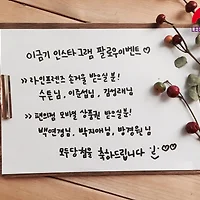 이금기 인스타그램 팔로우이벤트 ♡
>> 라인프렌즈 손거울 받으실 분!
수튼님, 이준섭님, 김성래님
>> 편의점 모바일 상품권 받으실분!
백연경님, 박지애님, 방경원님
모두당첨을 축하드립니다 :) ♡♡